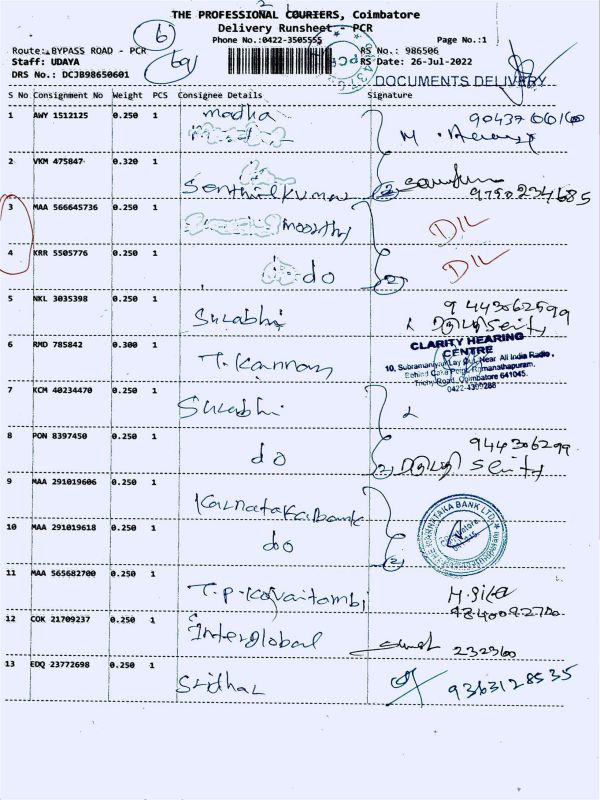 THE PROFESSIONAL COURIERS, Coimbatore
Delivery Runsheet - PCR
Phone No.:0422-3505555
Page No.:1
Route: BYPASS ROAD - PCR
Staff: UDAYA
DRS No.: DCJB98650601
RS No.: 986506
RS Date: 26-Jul-2022
DOCUMENTS DELIVERY
S No Consignment No Weight PCS Consignee Details Signature
1 AWY 1512125 0.250 1 madha
90437 00160
2 VKM 475847 0.320 1 Senthilkumar
9790234685
3 MAA 566645736 0.250 1 moorthy DIL
4 KRR 5505776 0.250 1 do DIL
5 NKL 3035398 0.250 1 Surabhi
9443062599
6 RMD 785842 0.300 1 T. Kannan
CLARITY HEARING
CENTRE
10, Subramaniyan Lay Out, Near All India Radio,
Behind Cake Point, Ramanathapuram,
Trichy Road, Coimbatore 641045.
7 KCM 40234470 0.250 1 Surabhi
8 PON 8397450 0.250 1 do
944306299
9 MAA 291019606 0.250 1 Karnataka bank
THE KARNATAKA BANK LTD.
Coimbatore
10 MAA 291019618 0.250 1 do
11 MAA 565682700 0.250 1 T.P. Kovaitambi
12 COK 21709237 0.250 1 Interglobal
232360
13 EDQ 23772698 0.250 1 Sridhar
9363128535